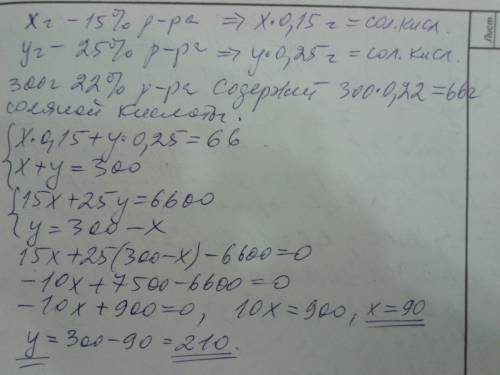 xг - 15% р-ра => x·0,15 г = сол.кисл.
yг - 25% р-ра => y·0,25 г = сол.кисл.
300г 22% р-ра содержит 300·0,22=66г
соляной кислоты.
x·0,15+y·0,25=66
x+y=300
15x+25y=6600
y=300-x
15x+25(300-x)-6600=0
-10x+7500-6600=0
-10x+900=0, 10x=900, x=90
y=300-90=210.
Лист